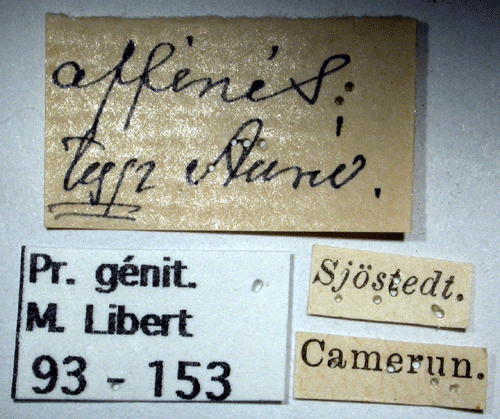 affinis.
Typ Auriv.
Pr. génit.
M. Libert
93 - 153
Sjöstedt.
Camerun.